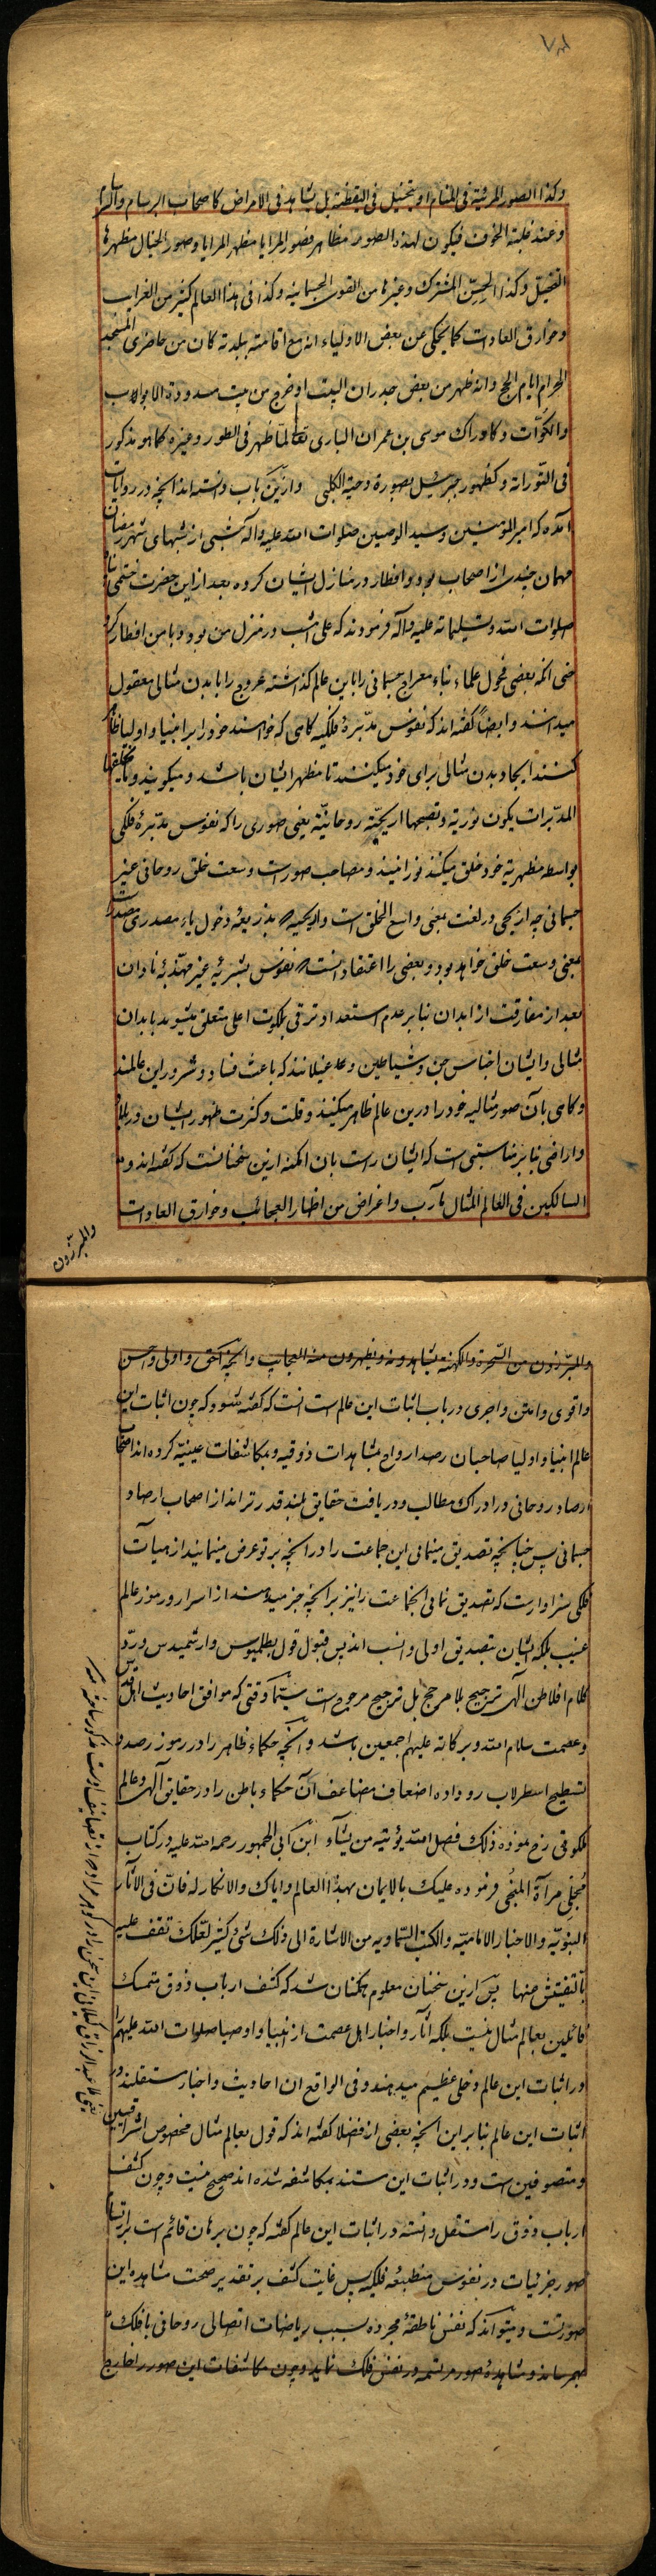 وكذا الصور المرئية فى المنام او يتخيل فى اليقظة بل يشاهد فى الامراض كاصحاب البرسام والسرسام
وعند غلبة الخوف فيكون لهذه الصور مظاهر فصور المرايا مظهر المرايا وصور الخيال مظهرها
التخيل وكذا الحسّ المشترك وغيرها من القوى الجسمانيه وكذا فى هذا العالم كثير من الغرايب
وخوارق العادات كما يحكى عن بعض الاولياء انه مع اقامته ببلدته كان من حاضرى المسجد
الحرام ايام الحج وانه ظهر من بعض جدران البيت او خرج من بيت مسدودة الابواب
والكوّات وكادراك موسى بن عمران البارى تعالى لمّا ظهر فى الطور وغيره كما هو مذكور
فى التّوراة وكظهور جبرئيل بصورة دحية الكلبى وازين باب دانسته اند آنچه در روايات
آمده كه امير المؤمنين وسيد الوصيين صلوات الله عليه وآله شبى از شبهاى شهر رمضان
مهمان چندى از اصحاب بود وافطار در منازل ايشان كرده بعد از اين حضرت ختمى پناه
صلوات الله وتسليماته عليه وآله فرمودند كه على امشب در منزل من بود وبا من افطار كرد
حتى انكه بعضى فحول علماء بناء معراج جسمانى را باين عالم گذاشته عروج را با بدن مثالى معقول
ميدانند وايضاً گفته اند كه نفوس مدبّرهٔ فلكيه گاهى كه خواهند خود را بر انبيا واوليا ظاهر
كنند ايجاد بدن مثالى براى خود ميكنند تا مظهر ايشان باشد وميگويند وما يخلقها
المدبّرات يكون نوريه وتصحبها اريحيّة روحانيّة يعنى صورى را كه نفوس مدبّرهٔ فلكى
بواسطه مظهريه خود خلق ميكنند نورانيند ومصاحب صور است وسعت خلق روحانى غير
جسمانى چه اريحى در لغت بمعنى واسع الخلق است واريحيه بذريعهٔ دخول ياء مصدرى مصدر است
بمعنى وسعت خلق خواهد بود وبعضى را اعتقاد آنست كه نفوس بشريه غير مهذّبهٔ نادان
بعد از مفارقت از ابدان بنابر عدم استعداد ترقى بملكوت اعلى متعلق ميشوند بابدان
مثالى وايشان اجناس جن وشياطين وغيلانند كه باعث فساد وشرور اين عالمند
وگاهى بآن صور مثاليه خود را درين عالم ظاهر ميكنند وقلت وكثرت ظهور ايشان در بلاد
واراضى بنابر مناسبتى است كه ايشان راست بان امكنه ازين سخنانست كه گفته اند و
السالكين فى العالم المثال مآرب واغراض من اظهار العجائب وخوارق العادات
والمبرّزون
والمبرّزون من السّحرة والكهنة يشاهدونه ويظهرون منه العجايب وآنچه احق واولى واحسن
واقوى وامتن واجرى در باب اثبات اين عالم است انست كه گفته شود كه چون اثبات اين
عالم انبيا واوليا صاحبان رصد ارواح بمشاهدات ذوقيه وبمكاشفات عينيّه كرده اند اصحاب
ارصاد روحانى در ادراك مطالب ودريافت حقايق بلند قدرتر اند از اصحاب ارصاد
جسمانى پس چنانچه تصديق مينمائى اين جماعت را در آنچه بر تو عرض مينمايند از هيآت
فلكى سزاوار است كه تصديق نمائى آنجماعت را نيز بر آنچه خبر ميدهند از اسرار ورموز عالم
غيب بلكه ايشان بتصديق اولى وانسب اند پس قبول قول بطلميوس وارشميدس وردّ
كلام افلاطن الهى ترجيح بلا مرجح بل ترجيح مرجوح است سيّما وقتى كه موافق احاديث اهل قدس
وعصمت سلام الله وبركاته عليهم اجمعين باشد وآنچه حكماء ظاهر را در رموز رصد و
تسطيح اسطرلاب رو داده اضعاف مضاعف آن حكماء باطن را در حقايق آلهى وعالم
ملكوتى رخ نموده ذلك فضل الله يؤتيه من يشاء ابن ابى الجمهور رحمه الله عليه در كتاب
مُجلّى مرآة المنجى فرموده عليك بالايمان بهذا العالم واياك والانكار له فانّ فى الآثار
النبويّه والاخبار الاماميّه والكتب السّماويه من الاشارة الى ذلك شئ كثير لعّلك تقف عليه
بالتفتيش منها پس ازين سخنان معلوم همكنان شد كه كشف ارباب ذوق متمسك
قائلين بعالم مثال نيست بلكه آثار واخبار اهل عصمت از انبيا واوصيا صلوات الله عليهم را
در اثبات اين عالم دخلى عظيم ميدهند وفى الواقع ان احاديث واخبار مستقلند در
اثبات اين عالم بنابراين آنچه بعضى از فضلا گفته اند كه قول بعالم مثال مخصوص اشراقيين
ومتصوفين است ودر اثبات اين مستند بمكاشفه شده اند صحيح نيست وچون كشف
ارباب ذوق را مستقل دانسته در اثبات اين عالم گفته كه چون برهان قائم است بر ارتسام
صور جزئيات در نفوس منطبعهٔ فلكيه پس غايت كشف بر تقدير صحت مشاهده اين
صورتست وميتواند كه نفس ناطقهٔ مجرده بسبب رياضات اتصالى روحانى بافلاك
بهم رساند ومشاهدهٔ صور مرتسمه در نفس فلك نمايد وچون مكاشفات اين صور را خارج
يعنى ملا عبد الرزاق گيلانى اين سخن را در گوهر مراد كه از تصانيف اوست مذكور ساخته